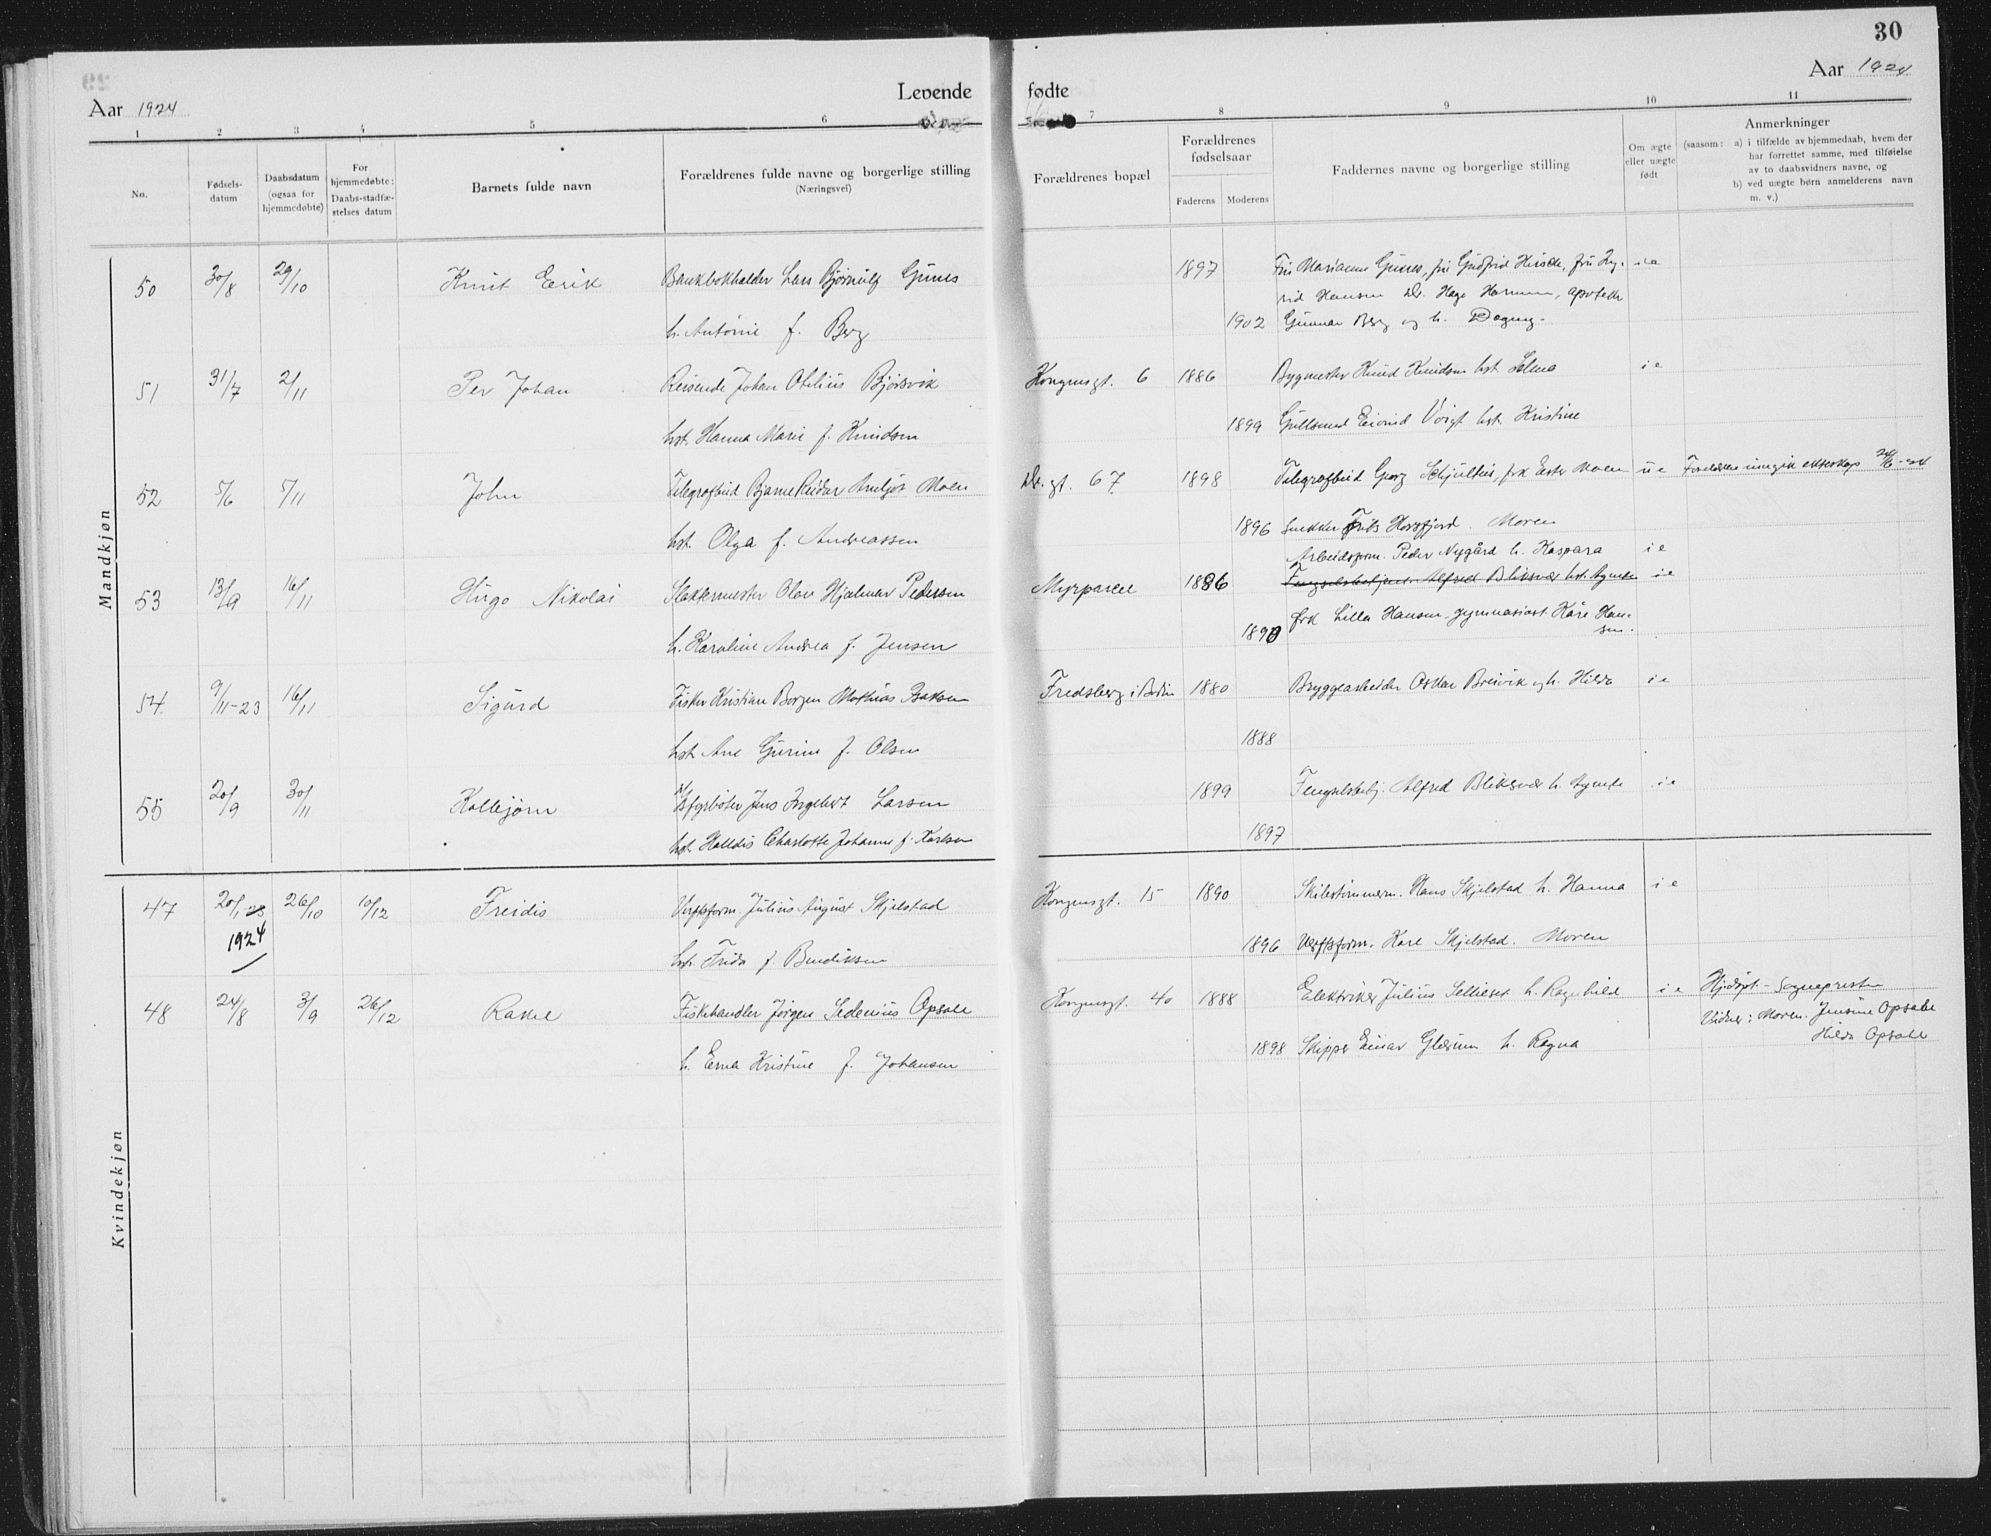 30
Aar 1924
Levende
fødte
Aar 1924
1 2 3 4 5 6 7 8 9 10 11
No.
Fødsels-
datum
Daabsdatum
(ogsaa for
hjemmedøbte)
For
hjemmedøbte:
Daabs-stadfæ-
stelses datum
Barnets fulde navn
Forældrenes fulde navne og borgerlige stilling
(Næringsvei)
Forældrenes bopæl
Forældrenes
fødselsaar
Faderens Moderens
Faddernes navne og borgerlige stilling
Om ægte
eller uægte
født
Anmerkninger
(saasom: a) i tilfælde av hjemmedaab, hvem der
har forrettet samme, med tilføielse
av to daabsvidners navne, og
b) ved uægte børn anmelderens navn
m. v.)
Mandkjøn
50 30/8 29/10 Knut Erik Bankbokholder Lars Bjørnulf 1897 Fru Marianne
Hansen Dr. Hage
h. Antonie f. Berg 1902 Gunnar Berg og h. Dagny.
51 31/7 2/11 Per Johan Reisende Johan Otelius Bjørsvik Kongensgt. 6 1886 Bygmester Knud Knudsen hst. Selma i e
hst. Hanna Marie f. Knudsen 1899 Gullsmed Eivind Voigt hst. Kristine
52 5/6 5/11 John Telegrafbud Bjarne Reidar Moen Dr. gt. 67 1898 Telegrafbud Georg frk Ester Moen u e Forældrene inngik ekteskap
hst. Olga f. Andreassen 1896 Snekker Horsfjord. Moren
Arbeidsform. Peder Nygård h. Kaspara i e
53 13/9 16/11 Hugo Nikolai Slaktermester Olav Hjalmar Pedersen Myrparcel 1886 Alfred Bliksvær hst. Agnete i e
h. Karoline Andrea f. Jensen 1890 frk Lilla Hansen, gymnasiast Kåre Han-
sen.
54 9/11-23 16/11 Sigurd Fisker Kristian Borgen Mathias Isaksen Fredsberg i Bodin 1880 Bryggearbeider Oskar Breivik og h. Hilda i e
hst. Ane f. Olsen 1888
55 20/9 30/11 Kollbjørn Jens Ingebert Larsen 1899 Fengselsbetj. Alfred Bliksvær h. Agnete i e
hst. Halldis Charlotte Johanne f. Karlsen 1897
Kvindekjøn
47 20/1 23 26/10 10/12 Freidis Verftsform. Julius August Skjelstad Kongensgt. 15 1890 Skibstømmerm. Hans Skjelstad h. Hanna i e
1924
hst. Frida f. Bendiksen 1896 Verftsform. Kare Skjelstad. Moren
48 24/8 3/9 26/12 Rakel Fiskehandler Jørgen Sedenius Opsahl Kongensgt. 40 1888 Elektriker Julius Sellieset h. Ragnhild i e Hjdøpt - Sogneprest
Vidner: Moren. Jensine Opsahl
h. Erna Kristine f. Johansen 1898 Skipper Einar Glærum h. Ragna Hilda Opsahl